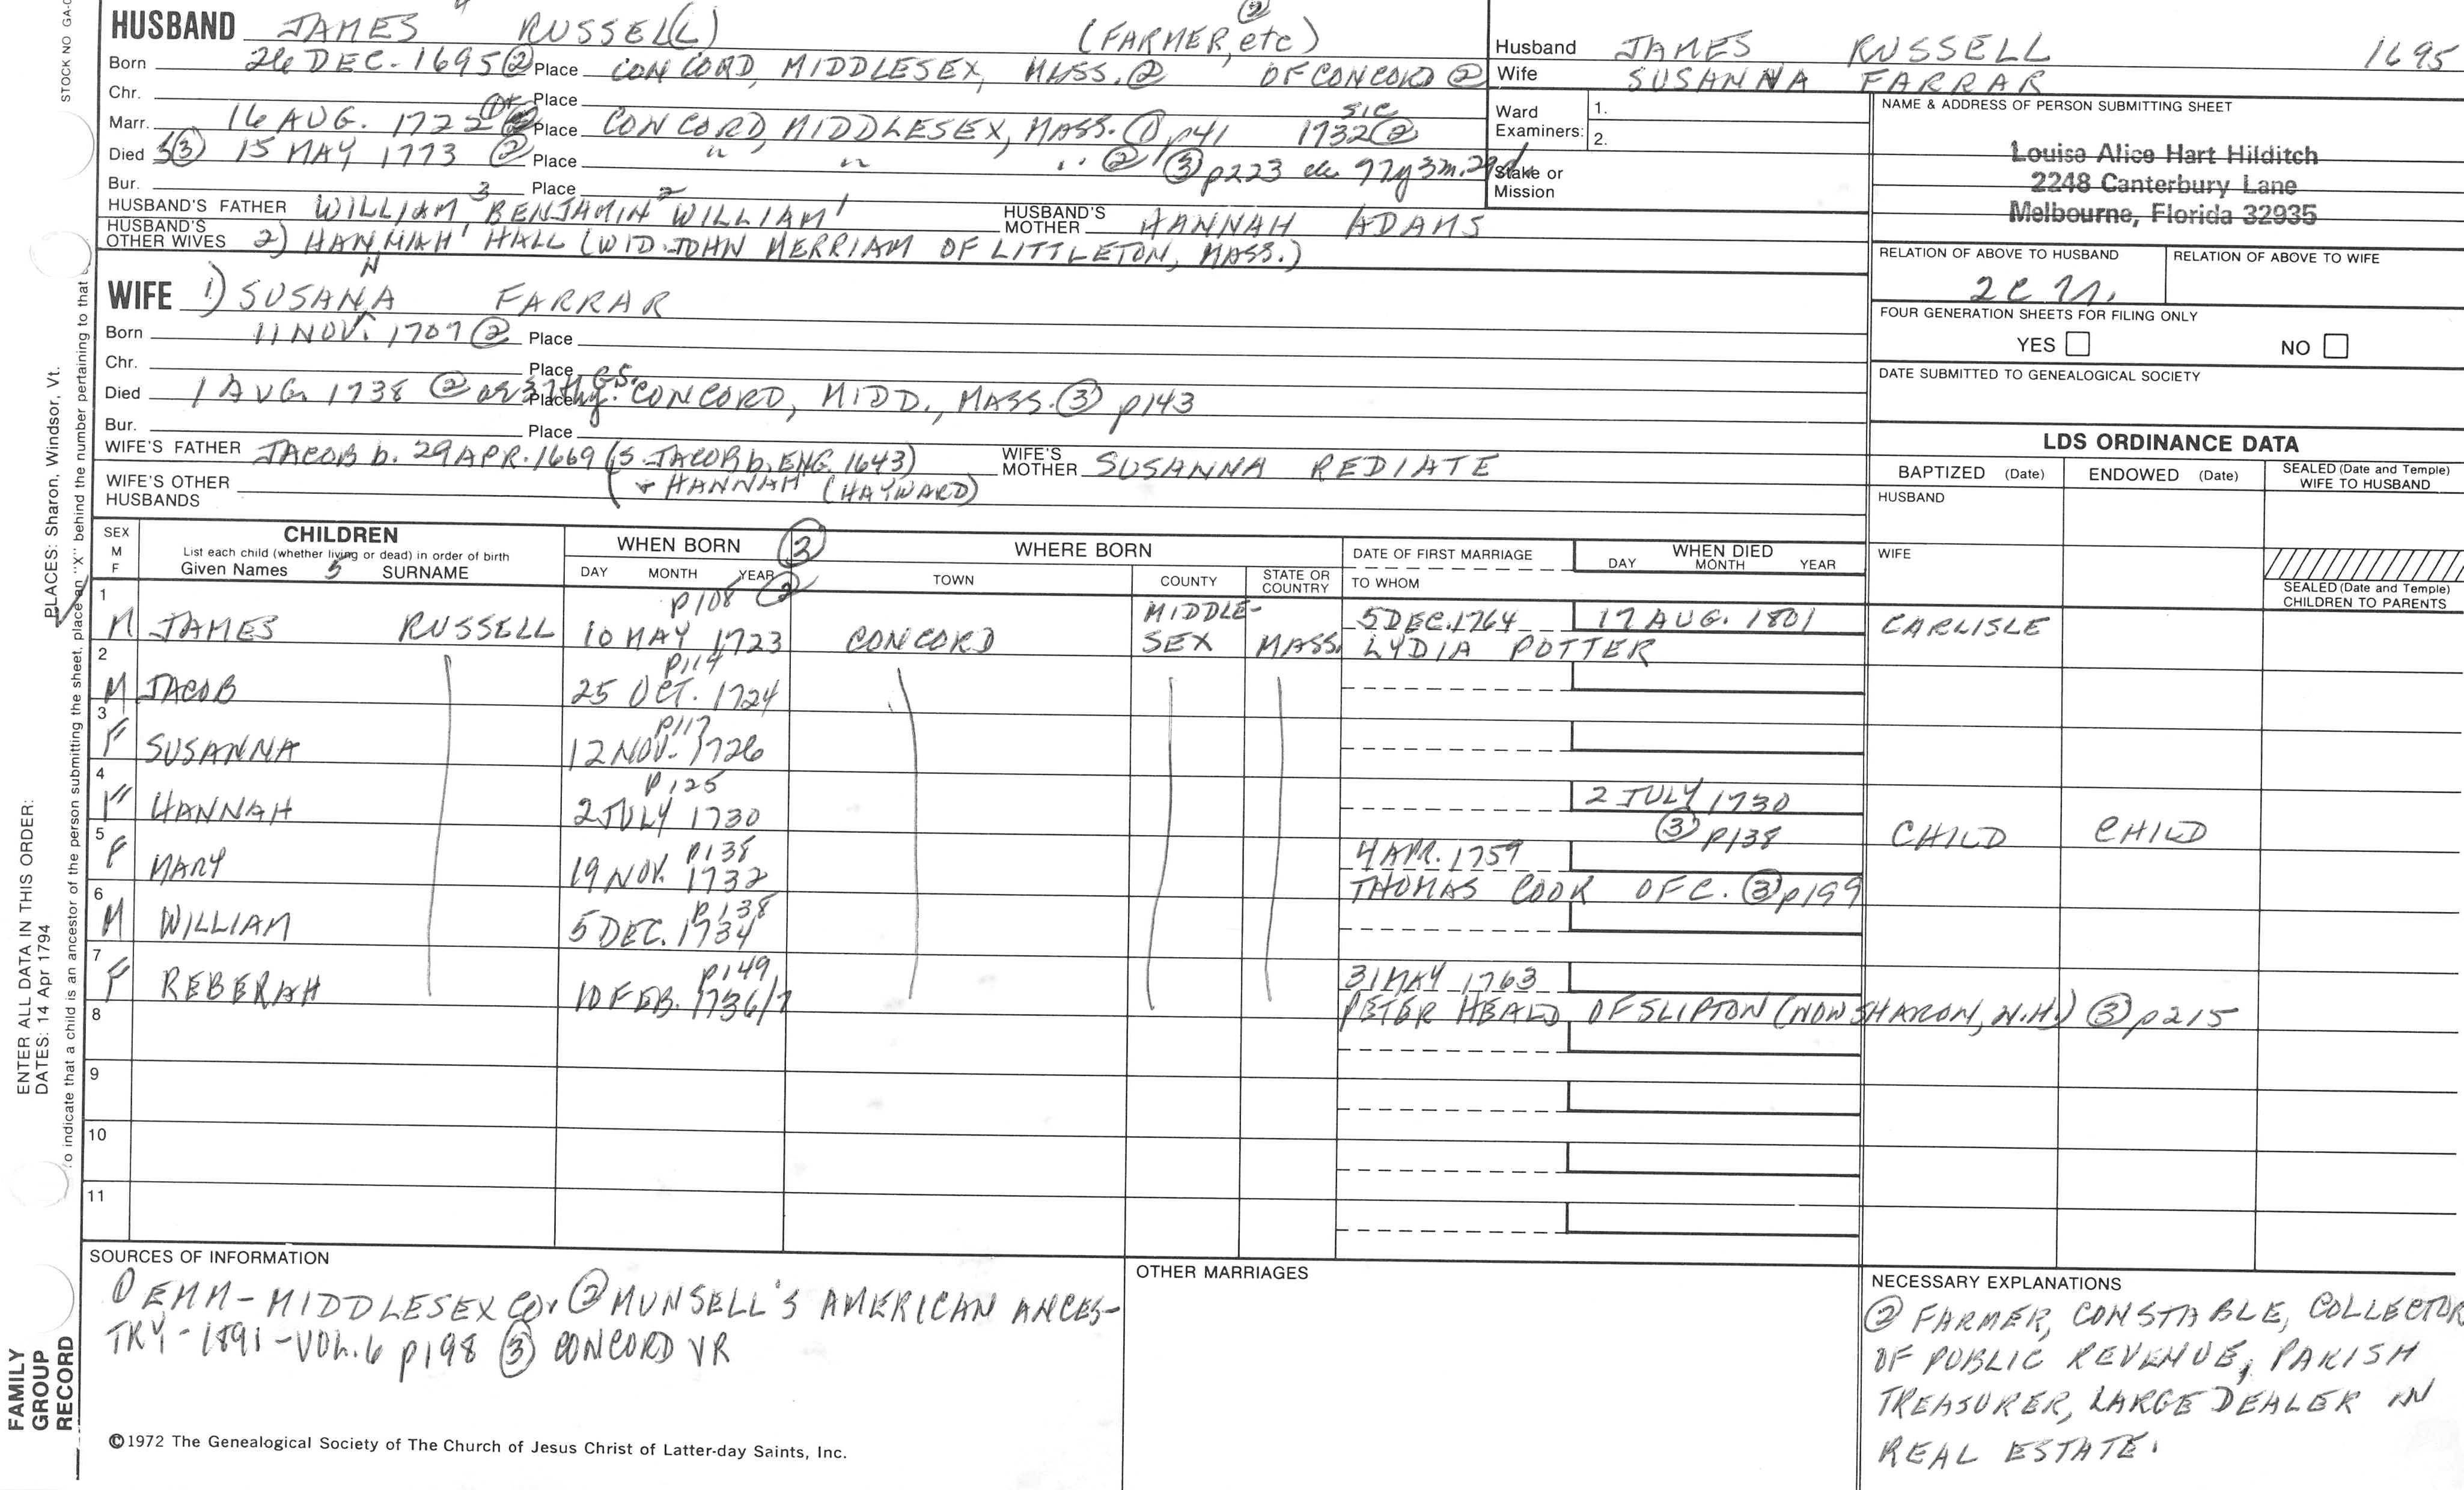 STOCK NO GA-
HUSBAND JAMES 4 RUSSEL(L) (FARMER, etc) ②
Born 26 DEC. 1695 ② Place CONCORD, MIDDLESEX, MASS. ② OF CONCORD ②
Chr. Place
Marr. 16 AUG. 1722 Place CONCORD, MIDDLESEX, MASS. ① p41 1732 ② sic
Died ③ 15 MAY 1773 ② Place " " " ② ③ p223 ae 77y 3m. 29d
Bur. Place
HUSBAND'S FATHER WILLIAM 3 BENJAMIN 2 WILLIAM 1 HUSBAND'S MOTHER HANNAH ADAMS
HUSBAND'S OTHER WIVES 2) HANNAH HALL (WID. JOHN MERRIAM OF LITTLETON, MASS.)
WIFE 1) SUSANNA FARRAR
Born 11 NOV. 1707 ② Place
Chr. Place
Died 1 AUG. 1738 ② Place CONCORD, MIDD., MASS. ③ p143
Bur. Place
WIFE'S FATHER JACOB b. 29 APR. 1669 (S. JACOB b. ENG. 1643) WIFE'S MOTHER SUSANNA REDIATE
WIFE'S OTHER HUSBANDS + HANNAH (HAYWARD)
Husband JAMES RUSSELL 1695
Wife SUSANNA FARRAR
Ward Examiners: 1.
2.
Stake or Mission
NAME & ADDRESS OF PERSON SUBMITTING SHEET
Louise Alice Hart Hilditch
2248 Canterbury Lane
Melbourne, Florida 32935
RELATION OF ABOVE TO HUSBAND RELATION OF ABOVE TO WIFE
FOUR GENERATION SHEETS FOR FILING ONLY
YES NO
DATE SUBMITTED TO GENEALOGICAL SOCIETY
LDS ORDINANCE DATA
BAPTIZED (Date) ENDOWED (Date) SEALED (Date and Temple) WIFE TO HUSBAND
HUSBAND
WIFE
SEALED (Date and Temple) CHILDREN TO PARENTS
SEX M F CHILDREN WHEN BORN ③ WHERE BORN DATE OF FIRST MARRIAGE WHEN DIED
List each child (whether living or dead) in order of birth
Given Names 5 SURNAME DAY MONTH YEAR ② TOWN COUNTY STATE OR COUNTRY TO WHOM DAY MONTH YEAR
1 p108 MIDDLE- 5 DEC. 1764 17 AUG. 1801 CARLISLE
M JAMES RUSSELL 10 MAY 1723 CONCORD SEX MASS. LYDIA POTTER
2 p114
M JACOB 25 OCT. 1724
3 p117
F SUSANNA 12 NOV. 1726
4 p125 2 JULY 1730
F HANNAH 2 JULY 1730 ③ p138 CHILD CHILD
5 p138 4 APR. 1759
F MARY 19 NOV. 1732 THOMAS COOK OF C. ③ p199
6 p138
M WILLIAM 5 DEC. 1734
7 p149 31 MAY 1763
F REBEKAH 10 FEB. 1736/7 PETER HEALD OF SLIPTON (NOW SHARON, N.H.) ③ p215
8
9
10
11
SOURCES OF INFORMATION
① EMM - MIDDLESEX CO. ② MUNSELL'S AMERICAN ANCES-
TRY - 1891 - VOL. 6 p198 ③ CONCORD VR
OTHER MARRIAGES
NECESSARY EXPLANATIONS
② FARMER, CONSTABLE, COLLECTOR
OF PUBLIC REVENUE, PARISH
TREASURER, LARGE DEALER IN
REAL ESTATE.
©1972 The Genealogical Society of The Church of Jesus Christ of Latter-day Saints, Inc.
FAMILY
GROUP
RECORD
ENTER ALL DATA IN THIS ORDER:
DATES: 14 Apr 1794
PLACES: Sharon, Windsor, Vt.
To indicate that a child is an ancestor of the person submitting the sheet, place an "X" behind the number pertaining to that